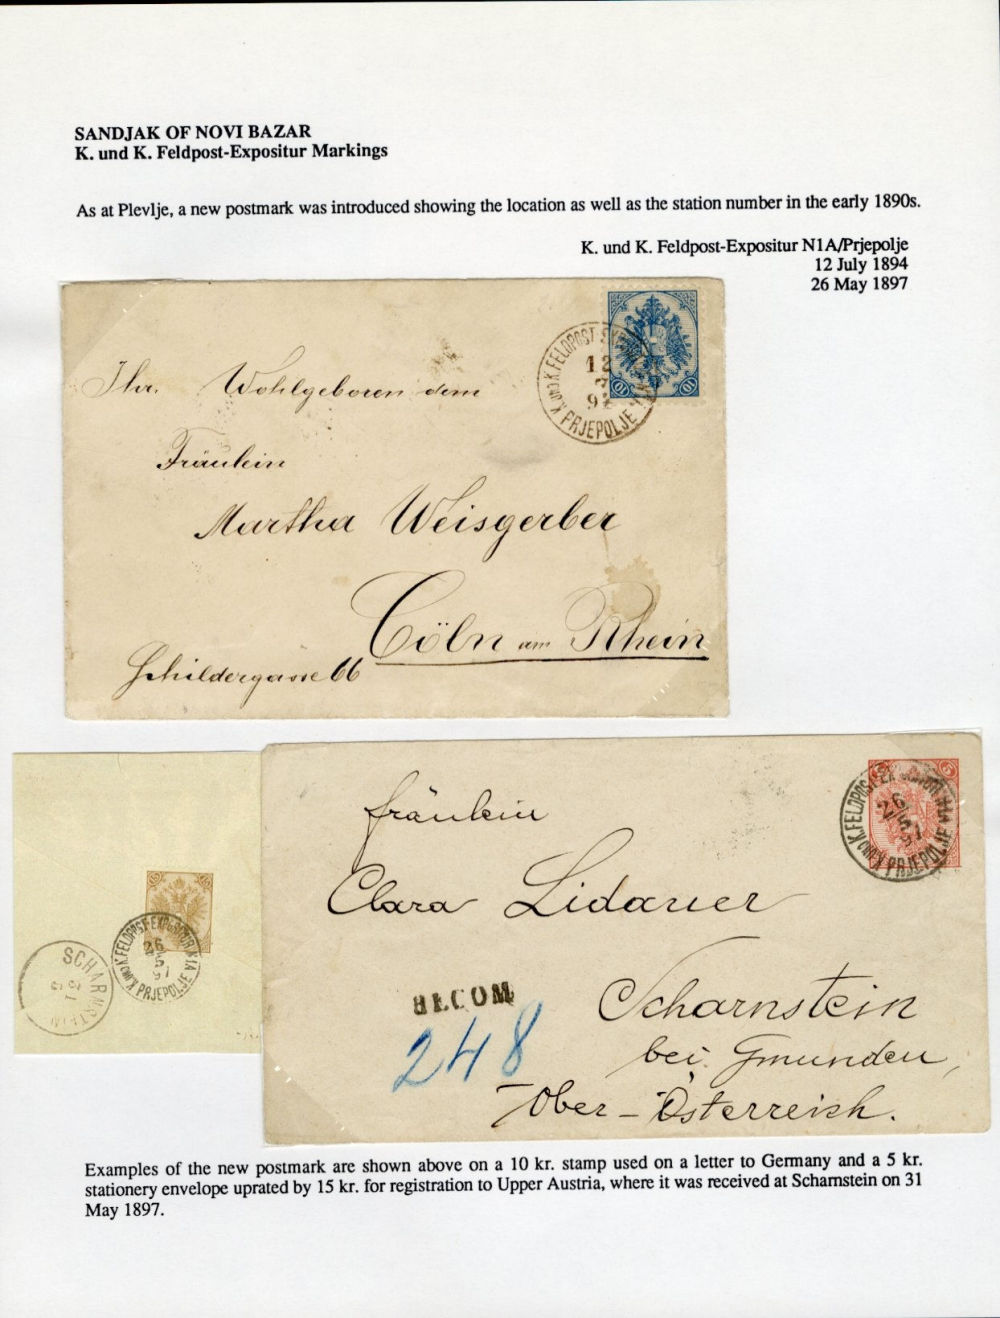 SANDJAK OF NOVI BAZAR
K. und K. Feldpost-Expositur Markings
As at Plevlje, a new postmark was introduced showing the location as well as the station number in the early 1890s.
K. und K. Feldpost-Expositur N1A/Prjepolje
12 July 1894
26 May 1897
K. UND K. FELDPOST
PRJEPOLJE
12
7
94
10 10
Ihr. Wohlgeboren dem
Fräulein
Martha Weisgerber
Cöln am Rhein
Schildergasse 66
K. UND K. FELDPOST-EXPOSITUR N 1A
PRJEPOLJE
26
5
97
SCHARNSTEIN
31
5
5
K. UND K. FELDPOST-EXPOSITUR N 1A
PRJEPOLJE
26
5
97
fräulein
Clara Lidauer
RECOM
248
Scharnstein
bei Gmunden,
Ober-Österreich.
Examples of the new postmark are shown above on a 10 kr. stamp used on a letter to Germany and a 5 kr.
stationery envelope uprated by 15 kr. for registration to Upper Austria, where it was received at Scharnstein on 31
May 1897.